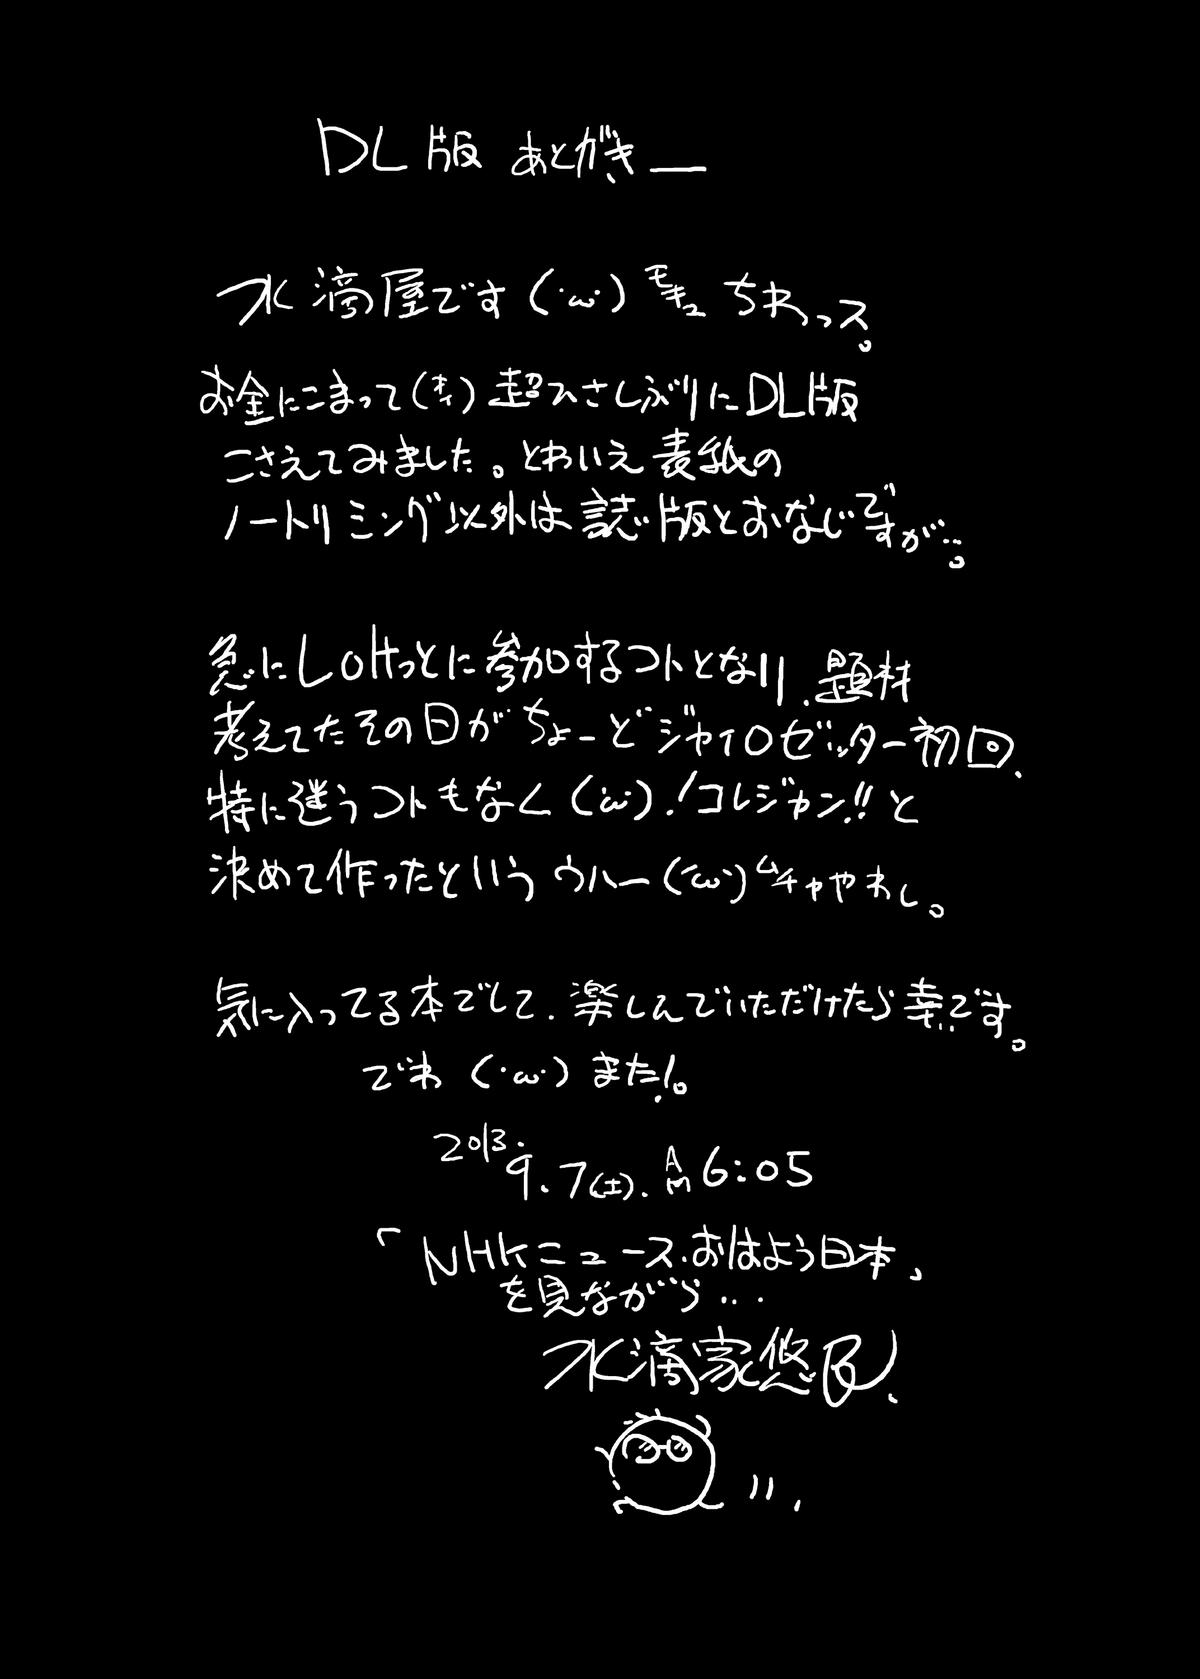 DL版 あとがきー
水滴屋です(・ω・)モキュ ちわっス。
お金にこまって(オイ)超ひさしぶりにDL版
こさえてみました。とわいえ表紙の
ノートリミング以外は誌版とおなじですが…。
急にしoHっとに参加するコトとなり、題材
考えてたその日がちょーどジャイロゼッター初回、
特に迷うコトもなく(・ω・)!コレジャン!!と
決めて作ったという ウハー(・ω・)ムチャやわし。
気に入ってる本でして、楽しんでいただけたら幸いです。
でわ (・ω・) また!。
2013.9.7(土). AM6:05
「NHKニュース、おはよう日本」
を見ながら…
水滴家悠